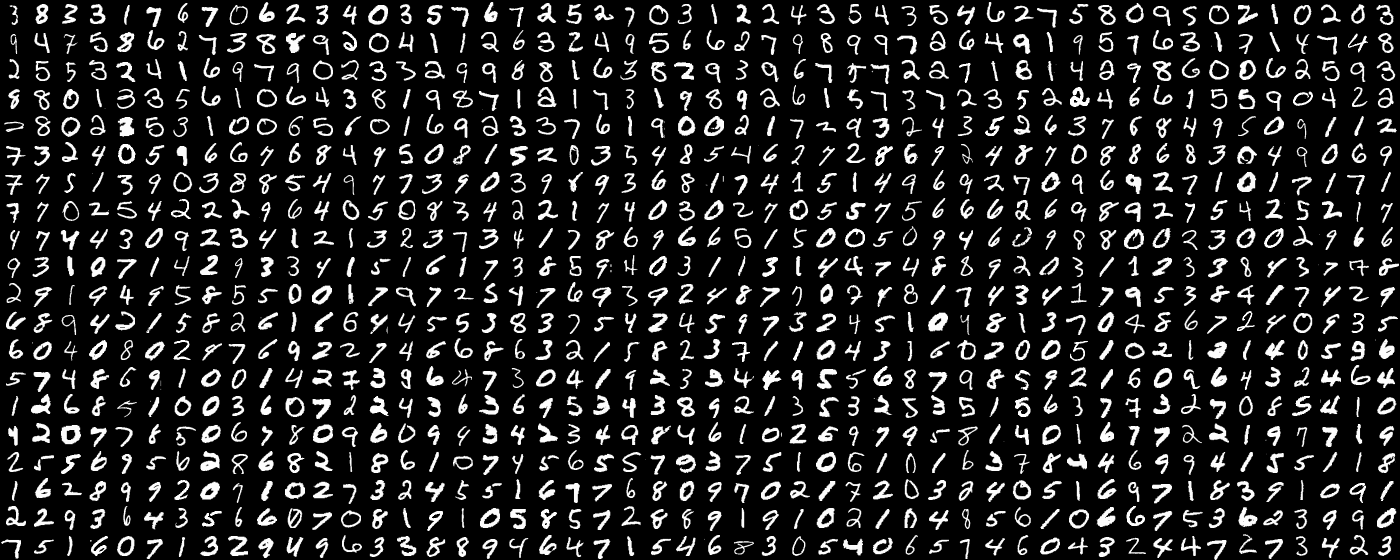 3 8 3 3 1 7 6 7 0 6 2 3 4 0 3 5 7 6 7 2 5 2 7 0 3 1 2 2 4 3 5 4 3 5 4 6 2 7 5 8 0 9 5 0 2 1 0 2 0 3
9 4 7 5 8 6 2 7 3 8 8 9 2 0 4 1 1 2 6 3 2 4 9 5 6 6 2 7 9 8 9 9 7 2 6 4 9 1 9 5 7 6 3 1 7 1 4 7 4 8
2 5 5 3 2 4 1 6 9 7 9 0 2 3 3 2 9 9 8 8 1 6 3 8 2 9 3 9 6 7 5 7 2 2 7 1 8 1 4 2 9 8 6 0 0 6 2 5 9 3
8 8 0 1 3 3 5 6 1 0 6 4 3 8 1 9 8 7 1 2 1 7 3 1 9 8 9 2 6 1 5 7 3 7 2 3 5 2 2 4 6 6 1 5 5 9 0 4 2 2
8 0 2 3 5 3 1 0 0 6 5 6 0 1 6 9 2 3 3 7 6 1 9 0 0 2 1 7 2 9 3 2 4 3 5 2 6 3 7 6 8 4 9 5 0 9 1 1 2
7 3 2 4 0 5 9 6 6 7 6 8 4 9 5 0 8 1 5 2 0 3 5 4 8 5 4 6 2 7 2 8 6 9 2 4 8 7 0 8 8 6 8 3 0 4 9 0 6 9
7 7 5 1 3 9 0 3 8 8 5 4 9 7 7 3 9 0 3 9 8 9 3 6 8 1 7 4 1 5 1 4 9 6 9 2 7 0 9 6 9 2 7 1 0 1 7 1 7 1
7 7 0 2 5 4 2 2 2 9 6 4 0 5 0 8 3 4 2 2 1 7 4 0 3 0 2 7 0 5 5 7 5 6 6 6 2 6 9 8 9 2 7 5 4 2 5 2 1 7
4 7 4 4 3 0 9 2 3 4 1 2 1 3 2 3 7 3 4 1 7 8 6 9 6 6 5 1 5 0 0 5 0 9 4 6 0 9 8 8 0 0 2 3 0 0 2 9 6 6
9 3 1 0 7 1 4 2 9 3 3 4 1 5 1 6 1 7 3 8 5 9 4 0 3 1 1 3 1 4 4 7 4 8 8 9 2 0 3 1 1 2 3 3 8 4 3 7 7 8
2 9 1 9 4 9 5 8 5 5 0 0 1 7 9 7 2 5 4 7 6 9 3 9 2 4 8 7 7 0 7 4 8 1 7 4 3 4 1 7 9 5 3 8 4 1 7 4 2 9
6 8 9 4 2 1 5 8 2 6 1 6 6 4 4 5 5 3 8 3 7 5 4 2 4 5 9 7 3 2 4 5 1 0 4 8 1 3 7 0 4 8 6 7 2 4 0 9 3 5
6 0 4 0 8 0 2 9 7 6 9 2 2 7 4 6 6 8 6 3 2 1 5 8 2 3 7 1 1 0 4 3 1 6 0 2 0 0 5 1 0 2 1 3 1 4 0 5 9 6
5 7 4 8 6 9 1 0 0 1 4 2 7 3 9 6 4 7 3 0 4 1 9 2 3 3 4 4 9 5 5 6 8 7 9 8 5 9 2 1 6 0 9 6 4 3 2 4 6 4
1 2 6 8 5 1 0 0 3 6 0 7 2 2 4 3 6 3 6 9 5 3 4 3 8 9 2 1 3 5 3 2 5 3 5 1 5 6 3 7 7 3 2 7 0 8 5 4 1 0
4 2 0 7 7 8 5 0 6 7 8 0 9 6 0 9 4 3 4 2 3 4 9 8 4 6 1 0 2 5 9 7 9 5 8 1 4 0 1 6 7 7 2 2 1 9 7 7 1 9
2 5 5 6 9 5 6 2 8 6 8 2 1 8 6 1 0 7 4 5 6 5 5 7 0 3 7 5 1 0 6 1 0 1 6 3 7 8 4 4 6 9 9 4 1 5 5 1 1 8
1 6 2 8 9 9 2 0 7 1 0 2 7 3 2 4 5 5 1 6 7 7 6 8 0 9 7 0 2 1 7 2 0 3 2 4 0 5 1 6 9 7 1 8 3 9 1 0 9 1
2 2 9 3 6 4 3 5 6 6 0 7 0 8 1 9 1 0 5 8 5 7 2 8 8 9 1 9 1 0 2 1 0 4 8 5 6 1 0 6 6 7 5 3 6 2 3 9 9 0
7 5 1 6 0 7 1 3 2 9 4 9 6 3 3 8 8 9 4 6 4 7 1 5 4 6 8 3 0 5 4 0 6 5 7 4 6 0 4 3 2 4 4 7 2 7 3 4 2 3